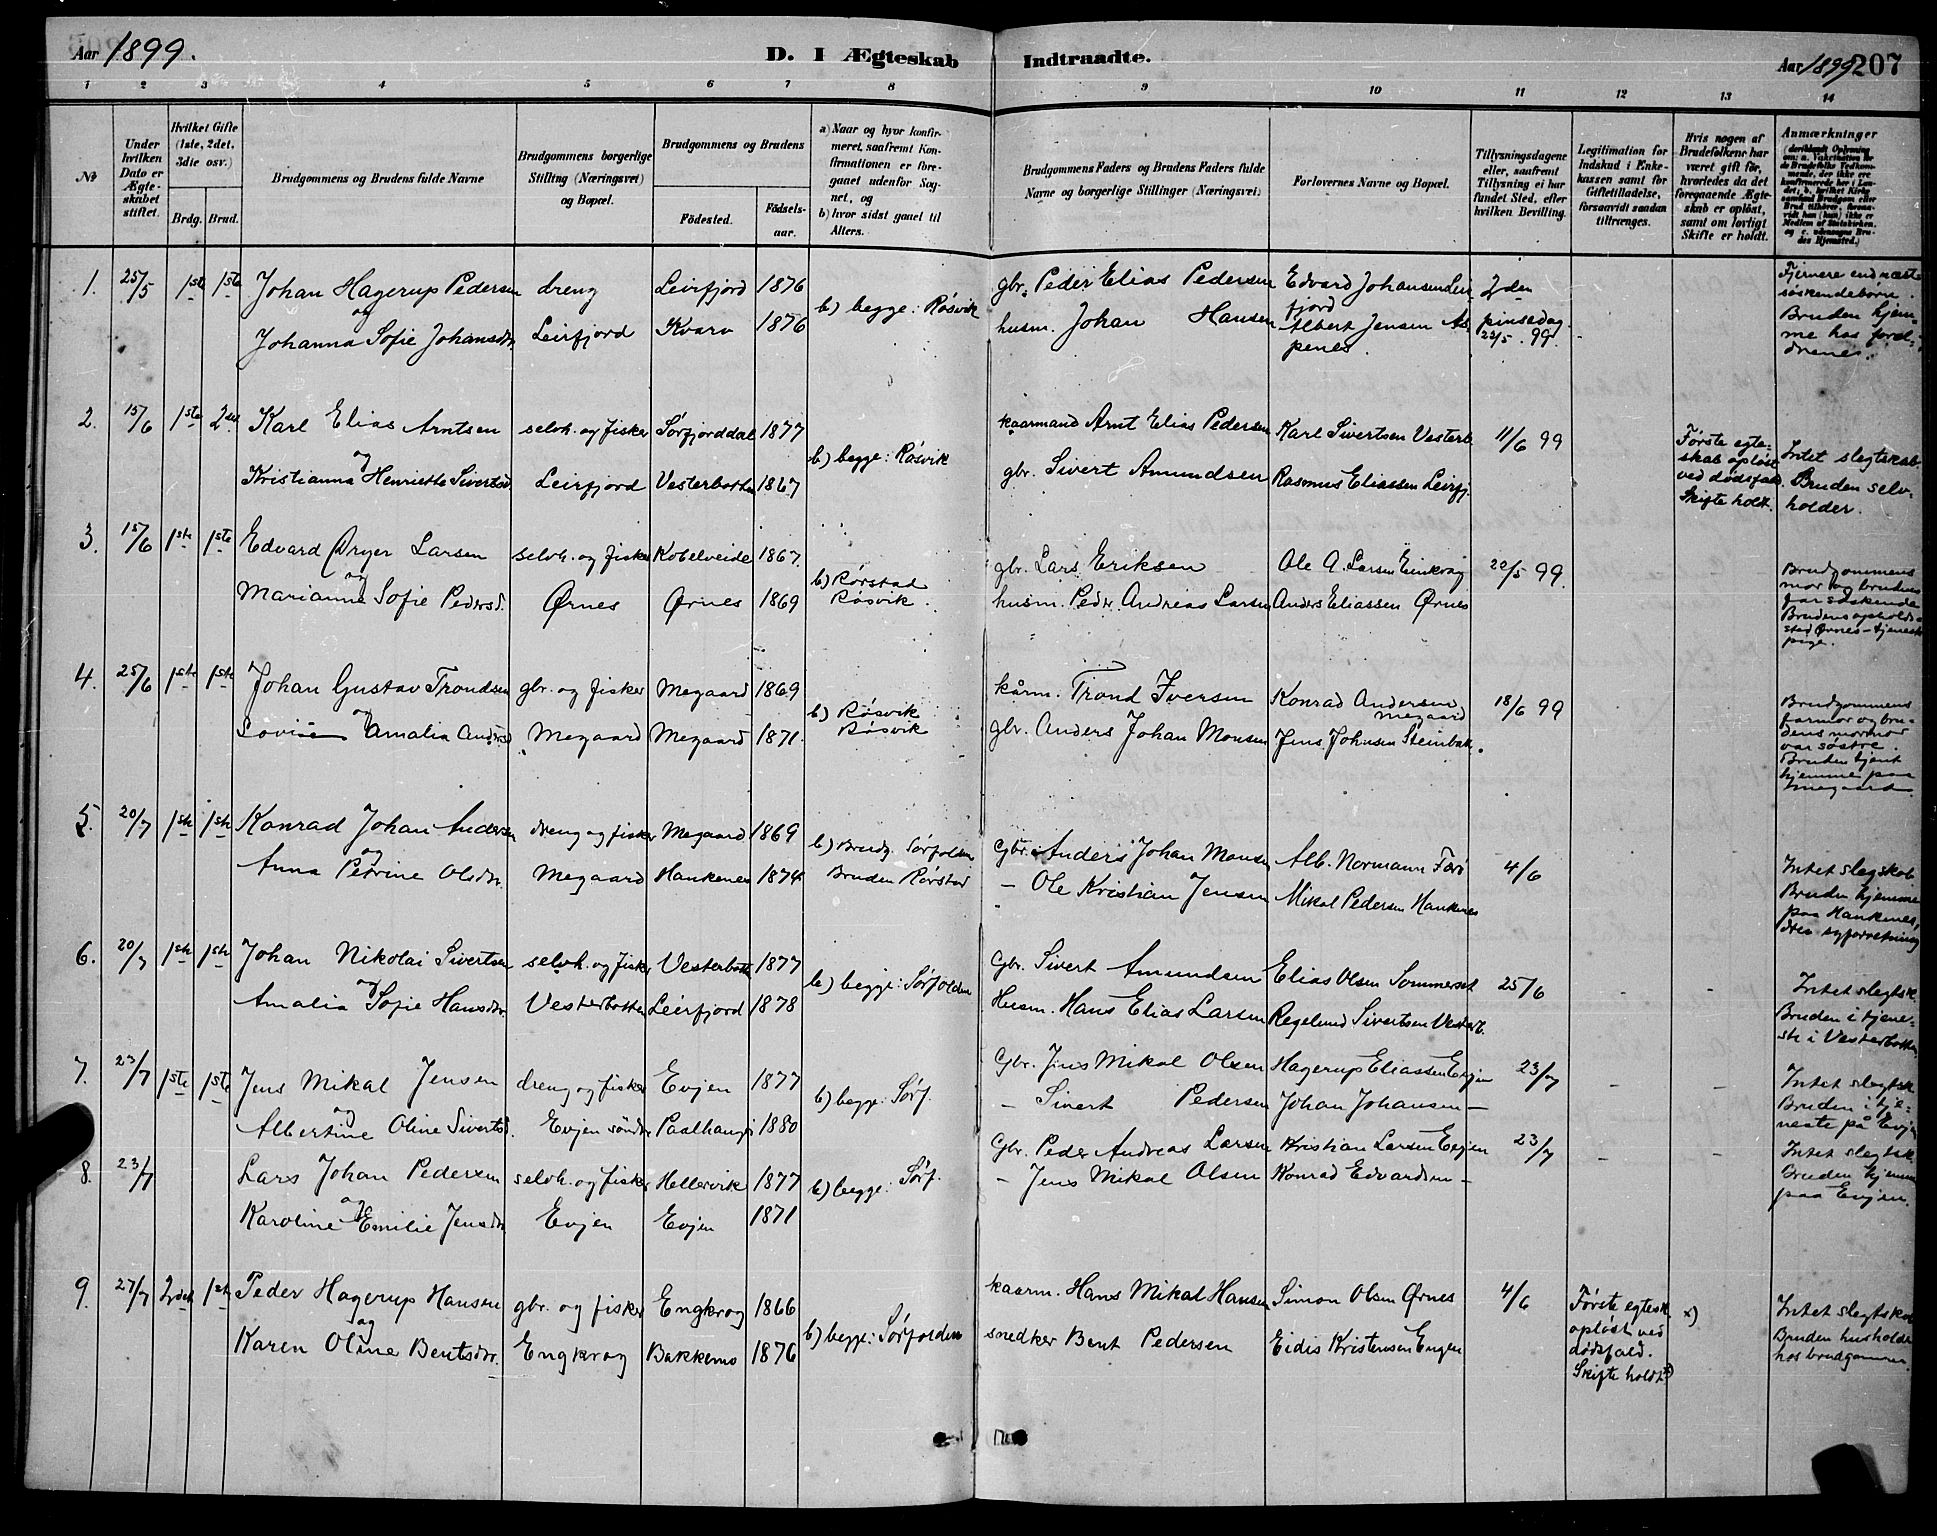 Aar 1899.
D. I Ægteskab Indtraadte.
Aar 1899
207
1 2 3 4 5 6 7 8 9 10 11 12 13 14
No
Under hvilken Dato er Ægteskabet stiftet.
Hvilket Gifte (1ste, 2det, 3die osv.)
Brdg. Brud.
Brudgommens og Brudens fulde Navne
Brudgommens borgerlige Stilling (Næringsvei) og Bopæl.
Brudgommens og Brudens
Fødested.
Fødselsaar.
a) Naar og hvor konfirmeret, saafremt Konfirmationen er foregaaet udenfor Sognet, og
b) hvor sidst gaaet til Alters.
Brudgommens Faders og Brudens Faders fulde Navne og borgerlige Stillinger (Næringsvei)
Forlovernes Navne og Bopæl.
Tillysningsdagene eller, saafremt Tillysning ei har fundet Sted, efter hvilken Bevilling.
Legitimation for Indskud i Enkekassen samt for Giftetilladelse, forsaavidt saadan tiltrænges.
Hvis nogen af Brudefolkene har været gift før, hvorledes da det foregaaende Ægteskab er opløst, samt om lovligt Skifte er holdt.
Anmærkninger
1. 25/5 1ste 1ste Johan Hagerup Pedersen dreng Leirfjord 1876 b) begge: Røsvik gbr. Peder Elias Pedersen Edvard Johansen Leirfjord 2den pinsedag 22/5 99. Fjernere end næstsøskendebørn.
og
Johanna Sofie Johansdr. Leirfjord Kvarv 1876 husm. Johan Hansen Albert Jensen Aspenes. Bruden hjemme hos forældrenes.
2. 15/6 1ste 2det Karl Elias Arntsen selvh. og fisker Sørfjorddal 1877 b) begge: Røsvik kaarmand Arnt Elias Pedersen Karl Sivertsen Vesterb. 11/6 99 Første egteskab opløst ved dødsfald. Skifte holdt. Intet slegtskab
og
Kristianna Henriette Sivertsd. Leirfjord Vesterbotten 1867 gbr. Sivert Amundsen Rasmus Eliassen Leirfj. Bruden selvholder.
3. 15/6 1ste 1ste Edvard Dryer Larsen selvh. og fisker Kobelveide 1867. b) Rørstad gbr. Lars Eriksen Ole A. Larsen Einkrog 22/5 99. Brudgommens mor og brudens far søskende
og
Marianne Sofie Pedersd. Ørnes Ørnes 1869 Røsvik. husm. Peder Andreas Larsen Anders Eliassen Ørnes Brudens opholdssted Ørnes - tjenestepige.
4. 25/6 1ste 1ste Johan Gustav Trondsen gbr. og fisker Megaard 1869 b) Røsvik kårm. Trond Iversen Konrad Andersen Megaard 18/6 99 Brudgommens farmor og brudens mormor var søstre.
og
Lovise Amalia Andersd. Megaard Megaard 1871. Røsvik gbr. Anders Johan Monsen Jens Johnsen Steinbak. Bruden tjent hjemme paa Megaard.
5. 20/7 1ste 1ste Konrad Johan Andersen dreng og fisker Megaard 1869 b) Brudg. Sørfolden Gbr. Anders Johan Monsen Alb. Normann Farö 4/6 Intet slegskab
og
Anna Petrine Olsdr. Megaard Hankenes 1874 Bruden Rørstad - Ole Kristian Jensen Mikal Pedersen Hankenes Bruden hjemme paa Hankenes, drev syforretning
6. 20/7 1ste 1ste Johan Nikolai Sivertsen selvh. og fisker Vesterbott. 1877 b) begge: Sørfolden Gbr. Sivert Amundsen Elias Olsen Sommerset 25/6 - - Intet slegtsk.
og
Amalia Sofie Hansdr. Vesterbotten Leirfjord 1878 Husm. Hans Elias Larsen Regelund Sivertsen Vesterb. Bruden i tjeneste i Vesterbotten
7. 23/7 1ste 1ste Jens Mikal Jensen dreng og fisker Evjen 1877 b) begge: Sørf. Gbr. Jens Mikal Olsen Hagerup Eliassen Evjen 23/7 - - Intet slegtsk.
og
Albertine Oline Sivertsd. Evjen søndr. Paalhaug 1880 - Sivert Pedersen Johan Johansen - Bruden i tjeneste på Evjen
8. 23/7 Lars Johan Pedersen selvh. og fisker Hellervik 1877 b) begge: Sørf. Gbr. Peder Andreas Larsen Kristian Larsen Evjen 23/7 - - Intet slegtsk.
og
Karoline Emilie Jensdr. Evjen Evjen 1871 - Jens Mikal Olsen Konrad Edvardsen - Bruden hjemme paa Evjen.
9. 27/7 2det 1ste Peder Hagerup Hansen gbr. og fisker Engkrog 1866 b) begge: Sørfolden kaarm. Hans Mikal Hansen Simon Olsen Ørnes 4/6 Første egtesk. opløst ved dødsfald. Skifte holdt x) x) Intet slegtskab
og
Karen Oline Bentsdr. Engkrog Bakkemo 1876 snedker Bent Pedersen Eidis Kristensen Engen Bruden husholder hos brudgommen